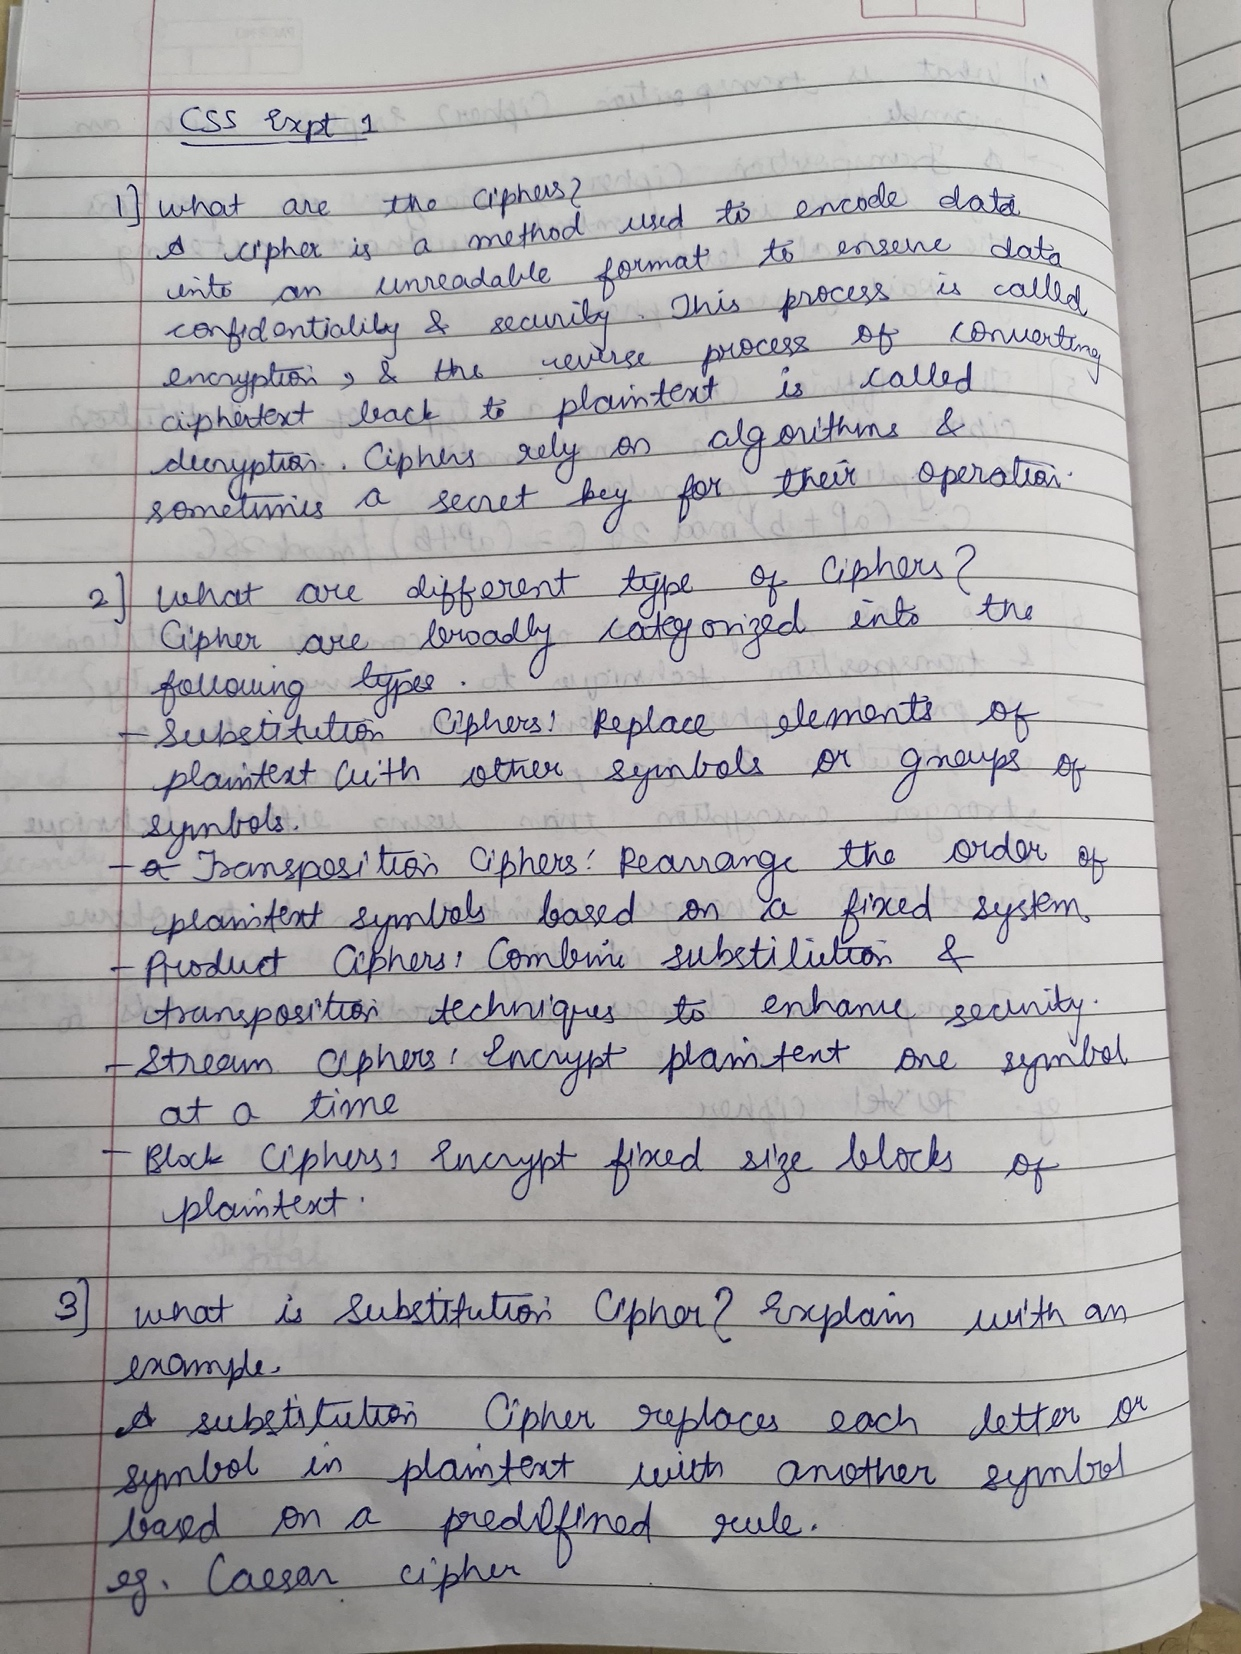 CSS Expt 1
1] What are the Ciphers?
A cipher is a method used to encode data
into an unreadable format to ensure data
confidentiality & security. This process is called
encryption, & the reverse process of converting
ciphertext back to plaintext is called
decryption. Ciphers rely on algorithms &
sometimes a secret key for their operation.
2] What are different type of Ciphers?
Cipher are broadly categorized into the
following types.
- Substitution Ciphers: Replace elements of
plaintext with other symbols or groups of
symbols.
- Transposition Ciphers: Rearrange the order of
plaintext symbols based on a fixed system.
- Product Ciphers: Combine substitution &
transposition techniques to enhance security.
- Stream Ciphers: Encrypt plaintent one symbol
at a time
- Block Ciphers: Encrypt fixed size blocks of
plaintext.
3] What is Substitution Cipher? Explain with an
example.
A substitution Cipher replaces each letter or
symbol in plaintext with another symbol
based on a predefined rule.
eg. Caesar cipher